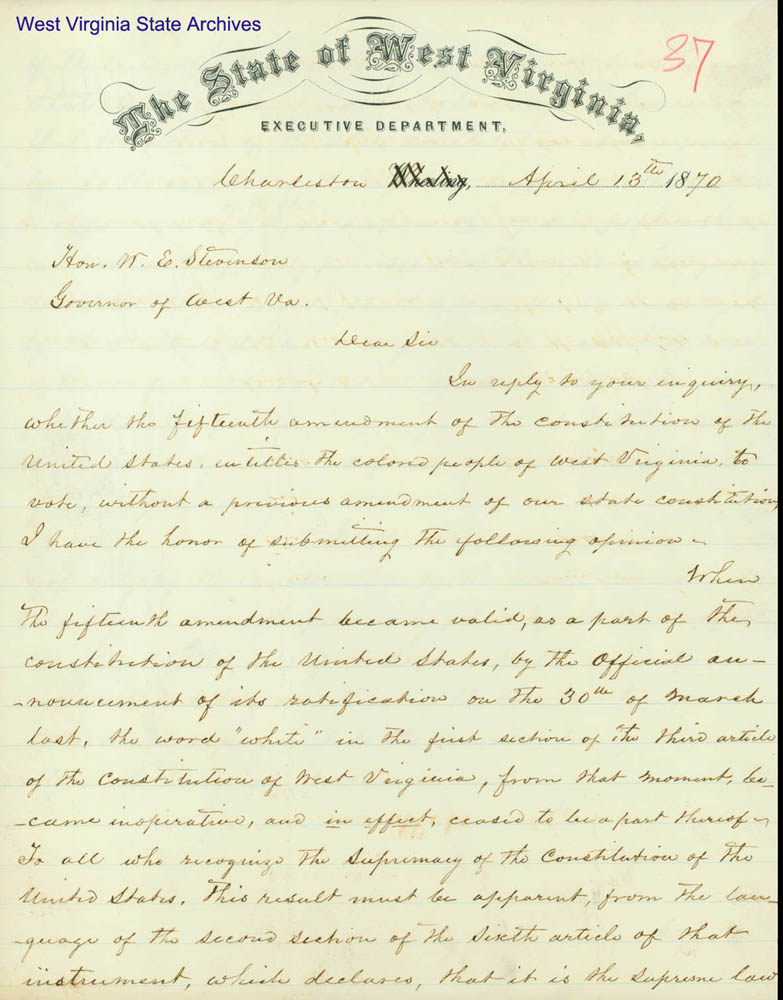 West Virginia State Archives
37
The State of West Virginia,
EXECUTIVE DEPARTMENT,
Charleston Wheeling, April 13th 1870
Hon. W. E. Stevenson
Governor of West Va.
Dear Sir
In reply to your inquiry,
whether the fifteenth amendment of the constitution of the
United States, entitles the colored people of West Virginia, to
vote, without a previous amendment of our state constitution,
I have the honor of submitting the following opinion -
When
the fifteenth amendment became valid, as a part of the
constitution of the United States, by the Official an-
-nouncement of its ratification on the 30th of March
last, the word "white" in the first section of the third article
of the Constitution of West Virginia, from that moment, be-
-came inoperative, and in effect, ceased to be a part thereof -
To all who recognize the Supremacy of the Constitution of the
United States, this result must be apparent, from the lan-
-guage of the second section of the sixth article of that
instrument, which declares, that it is the supreme law